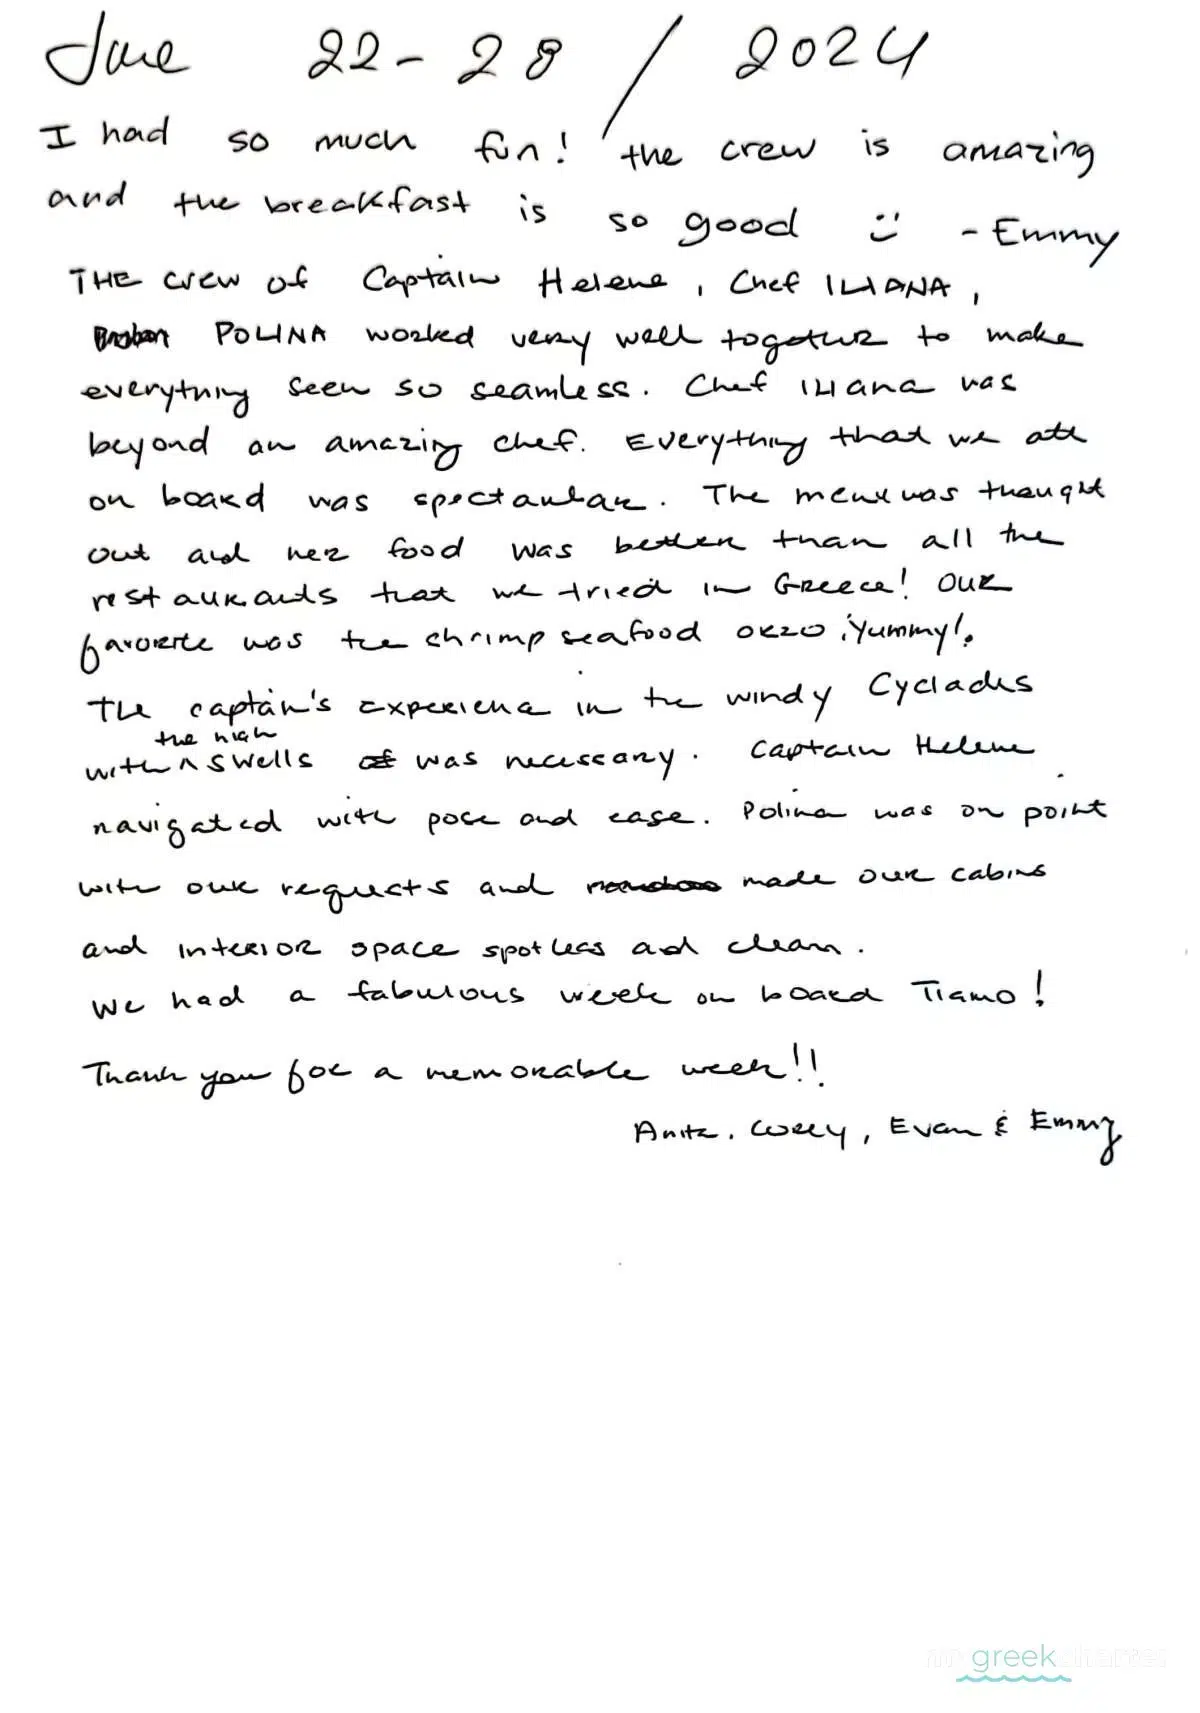 June 22-28 / 2024
I had so much fun! the crew is amazing
and the breakfast is so good :) - Emmy
THE crew of Captain Helene, Chef ILIANA,
POLINA worked very well together to make
everything seem so seamless. Chef Iliana was
beyond an amazing chef. Everything that we ate
on board was spectacular. The menu was thought
out and her food was better than all the
restaurants that we tried in Greece! Our
favorite was the shrimp seafood orzo ¡Yummy!.
The captain's experience in the windy Cyclades
the high
with ^ swells was necessary. Captain Helene
navigated with pose and ease. Polina was on point
with our requests and made our cabins
and interior space spotless and clean.
We had a fabulous week on board Tiamo!
Thank you for a memorable week!!
Anita, Corey, Evan & Emmy
my greek charter